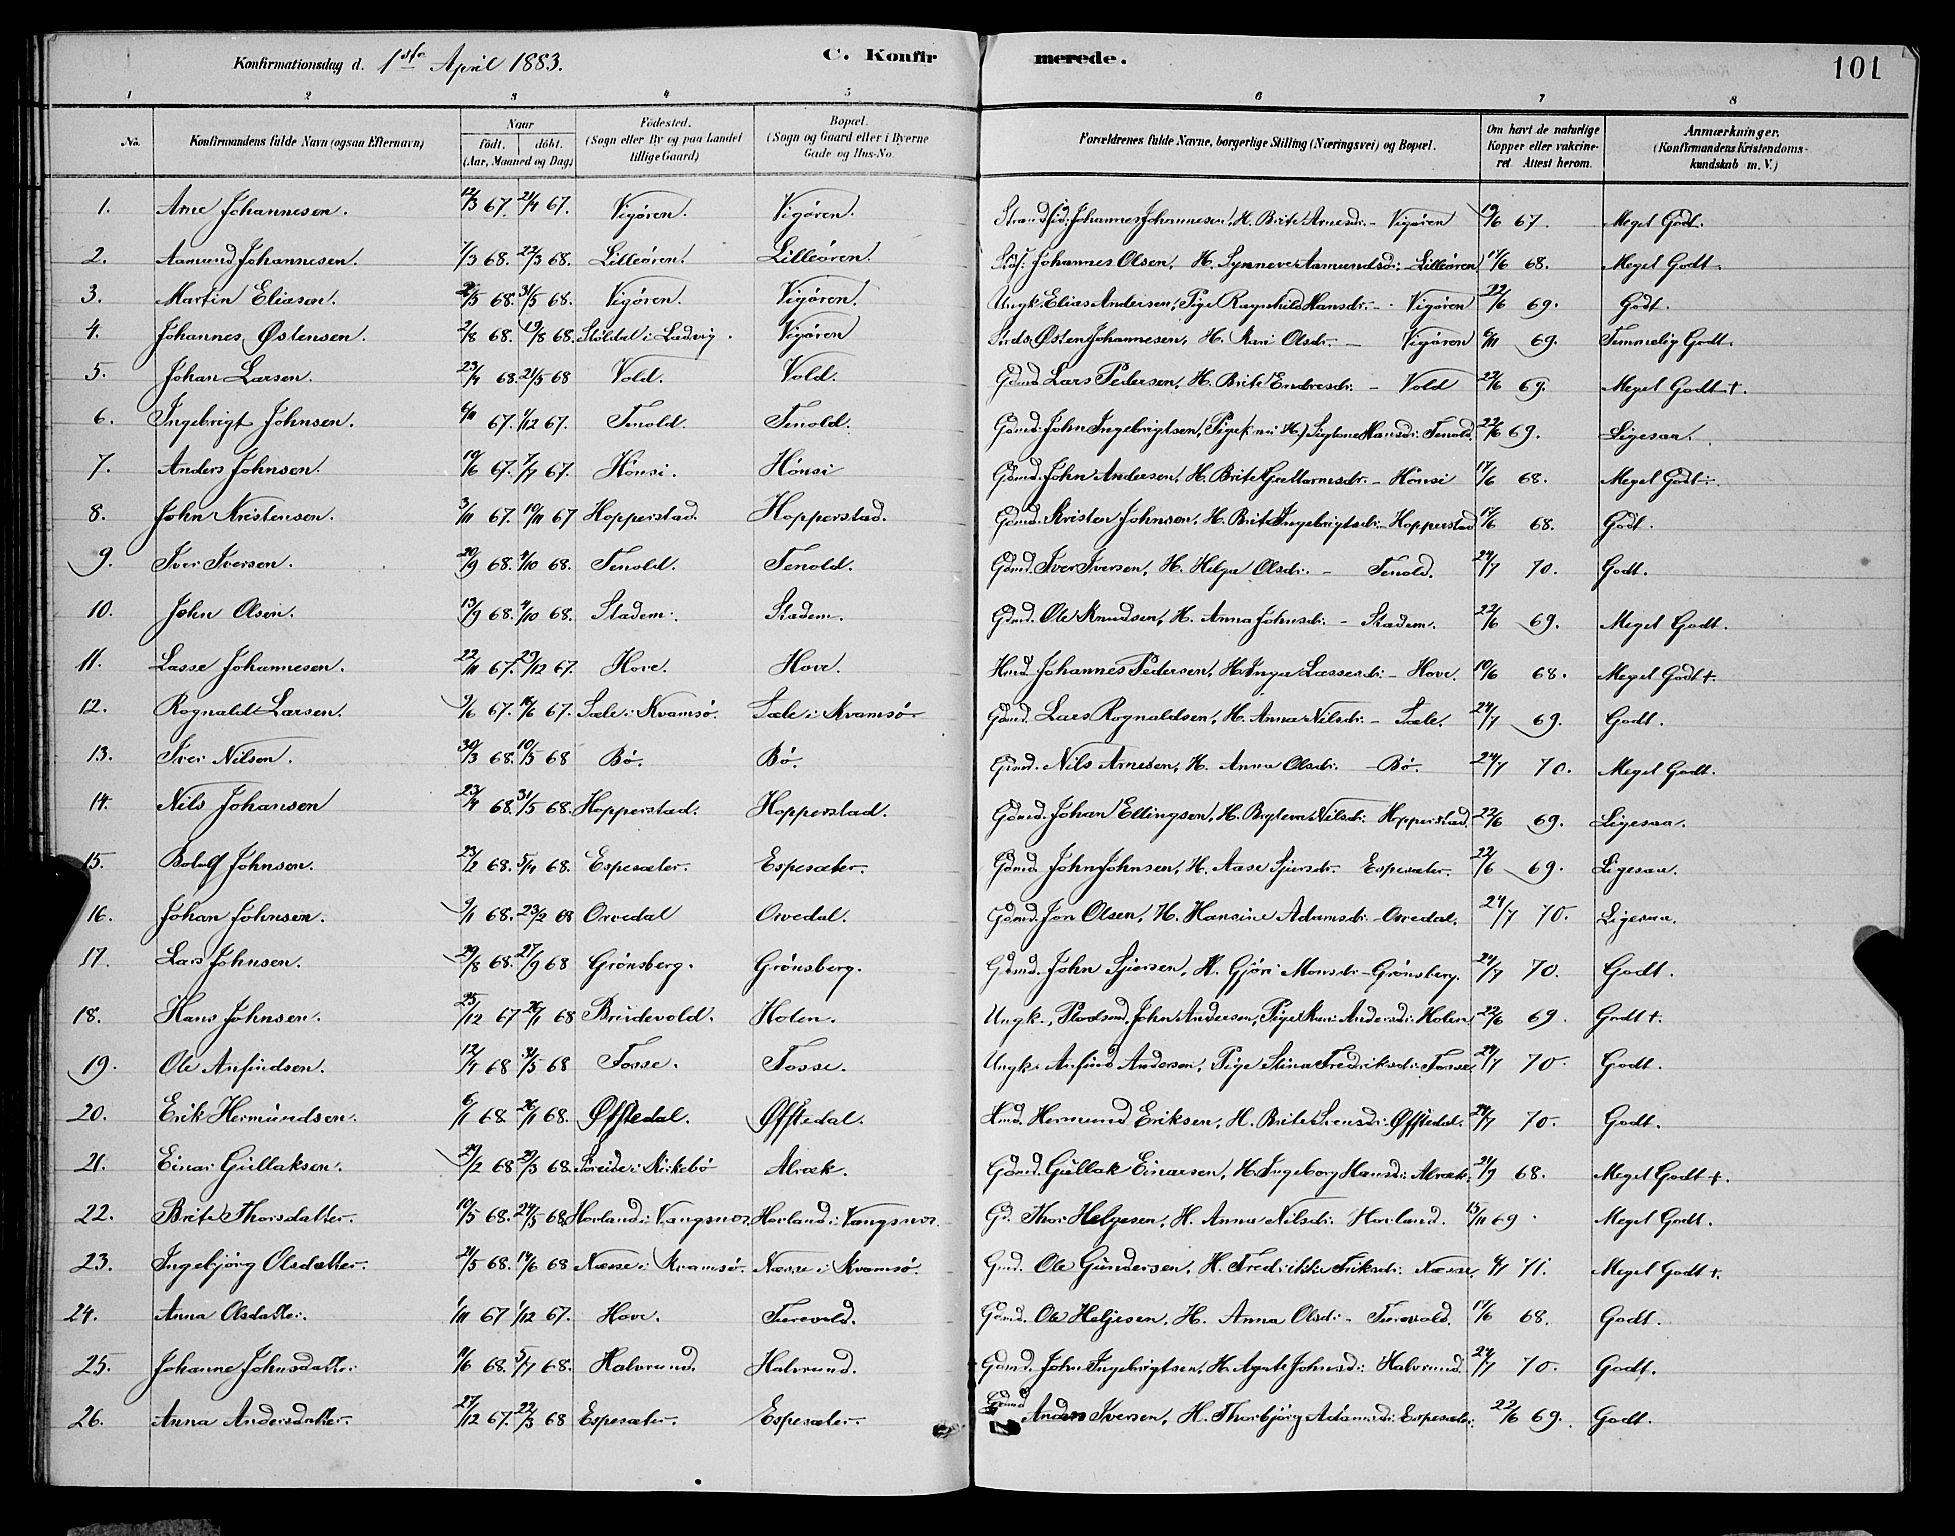 Konfirmationsdag d. 1ste April 1883. C. Konfirmerede. 101
1 2 3 4 5 6 7 8
No. Konfirmandens fulde Navn (ogsaa Efternavn) Naar født. døbt. (Aar, Maaned og Dag) Födested. (Sogn eller By og paa Landet tillige Gaard) Bopæl. (Sogn og Gaard eller i Byerne Gade og Hus-No. Forældrenes fulde Navne, borgerlige Stilling (Næringsvei) og Bopæl. Om havt de naturlige Kopper eller vakcineret Attest herom. Anmærkninger. (Konfirmandens Kristendomskundskab m. V.)
1. Arne Johannesen. 12/3 67. 21/4 67. Vigören. Vigören. Strandsid. Johannes Johannesen, H. Brite Arnesdr. - Vigören 19/6 67. Meget Godt.
2. Aamund Johannesen. 7/3 68. 22/3 68. Lilleören. Lilleören. Johannes Olsen, H. Synneve Aamundsdr. - Lilleören 17/6 68. Meget Godt.
3. Martin Eliasen. 68. 31/5 68. Vigören. Vigören. Ungk. Elias Andersen, Pige Ragnhild Hansdr. - Vigören 22/6 69. Godt.
4. Johannes Østensen. 2/8 68. 19/8 68. i Ladvig. Vigören Østen Johannesen, H. Kari Olsdr. - Vigören 6/11 69. Temmelig Godt.
5. Johan Larsen. 23/4 68. 21/5 68 Vold. Vold. Gdmd. Lars Pedersen, H. Brite Endresdr. - Vold 22/6 69. Meget Godt +.
6. Ingebrigt Johnsen. 6/11 67. 1/12 67. Tenold. Tenold. Gdmd. John Ingebrigtsen, Pige (nu H.) Hansdr. Tenold. 22/6 69. Ligesaa.
7. Anders Johnsen. 19/6 67. 7/7 67. Hönsi. Hönsi Gdmd. John Andersen, H. Brite Guttormsdr. - Hönsi 17/6 68. Meget Godt
8. John Kristensen. 3/11 67. 10/11 67 Hopperstad. Hopperstad. Gdmd. Kristen Johnsen, H. Brite Ingebrigtsdr. - Hopperstad 17/6 68. Godt.
9. Iver Iversen. 20/9 68. 4/10 68. Tenold. Tenold. Gdmd. Iver Iversen, H. Helga Olsdr. - Tenold. 24/7 70. Godt.
10. John Olsen. 13/9 68. 4/10 68. Stadem. Stadem. Gdmd. Ole Knudsen, H. Anna Johnsdr. - Stadem. 22/6 69. Meget Godt.
11. Lasse Johannesen. 22/11 67. 29/12 67. Hove. Hove. Hmd. Johannes Pedersen, H. Inga Lassesdr. - Hove. 10/6 68. Meget Godt +.
12. Rognald Larsen. 9/6 67. 16/6 67. Sæle i Kvamsø. Sæle i Kvamsø Gdmd. Lars Rognaldsen, H. Anna Nilsdr. - Sæle. 24/7 69. Godt.
13. Iver Nilsen. 30/3 68. 10/5 68 Bö. Bö. Gdmd. Nils Arnesen, H. Anna Olsdr. - Bö. 24/7 70. Meget Godt.
14. Nils Johansen 23/4 68. 31/5 68. Hopperstad. Hopperstad. Gdmd. Johan Ellingsen, H. Bryteva Nilsdr. Hopperstad. 22/6 69. Ligesaa.
15. Botolf Johnson. 23/2 68. 5/4 68. Espesæter. Espesæter. Gdmd. John Johnsen, H. Aase Sjursdr. Espesæter. 22/6 69. Ligesaa.
16. Johan Johnsen. 9/1 68. 23/2 68 Orvedal Orvedal. Gdmd. Jon Olsen, H. Hansine Adamsdr. - Orvedal. 24/7 70. Ligesaa.
17. Lars Johnsen. 29/8 68. 27/9 68 Grönsberg. Grönsberg. Gdmd. John Sjursen, H. Gjöri Monsdr. - Grönsberg. 24/7 70. Godt.
18. Hans Johnsen. 25/12 67 26/1 68 Breidevold. Holen. Ungk., Pladsmd. John Andersen, Pige Kari Andersdr. Holen 22/6 69. Godt +.
19. Ole Anfindsen. 12/4 68 31/5 68 Fosse. Fosse. Ungk. Anfind Andersen, Pige Stina Fredriksdr. Fosse 24/7 70. Godt.
20. Erik Hermundsen. 6/1 68. 26/1 68. Øffstedal. Øffstedal. Hmd. Hermund Eriksen, H. Brite Øffstedal. 24/7 70. Godt.
21. Einar Gullaksen. 68 29/3 68. Söreide i Kirkebö Alræk. Gdmd. Gullak Einarsen, H. Ingeborg Hansdr. Alræk. 21/9 68. Meget Godt +.
22. Brite Thorsdatter. 10/5 68. 24/5 68. Horland i Vangsnes Horland i Vangsnes. Gd. Thor Helgesen, H. Anna Nilsdr. Horland. 13/11 69. Meget Godt.
23. Ingebjörg Olsdatter. 21/5 68. 14/6 68 Næsse i Kvamsø. Næsse i Kvamsø. Gmd. Ole Gundersen, H. Fredrikke Eriksdr. Næsse. 71. Meget Godt +.
24. Anna Olsdatter. 1/11 67 1/12 67. Hove. Turevold. Gdmd. Ole Heljesen, H. Anna Olsdr. - Turevold. 17/6 68. Godt.
25. Johanne Johnsdatter 11/6 68. 5/7 68. Halvrund. Halvrund. Gdmd. John Ingebrigtsen, H. Agate Johnsdr. Halvrund. 24/7 70. Godt.
26. Anna Andersdatter. 27/12 67. 22/3 68 Espesæter. Espesæter. Gdmd Anders Iversen, H. Thorbjörg Adamsdr. Espesæter. 22/6 69. Godt.